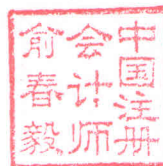 中国注册
会计师
俞春毅